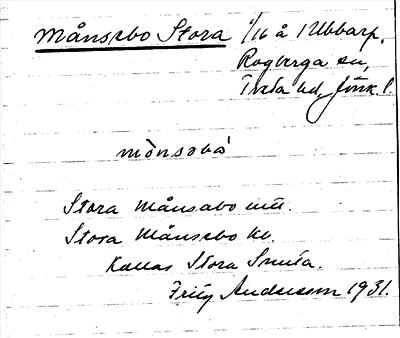 Månsabo Stora 1/16 å 1 Ubbarp,
Rogberga sn,
Tveta hd, Jönk. l.
mònsabo
Stora Månsabo mtl.
Stora Månsabo kl.
Kallas Stora Smula.
Fritz Andersson 1931.